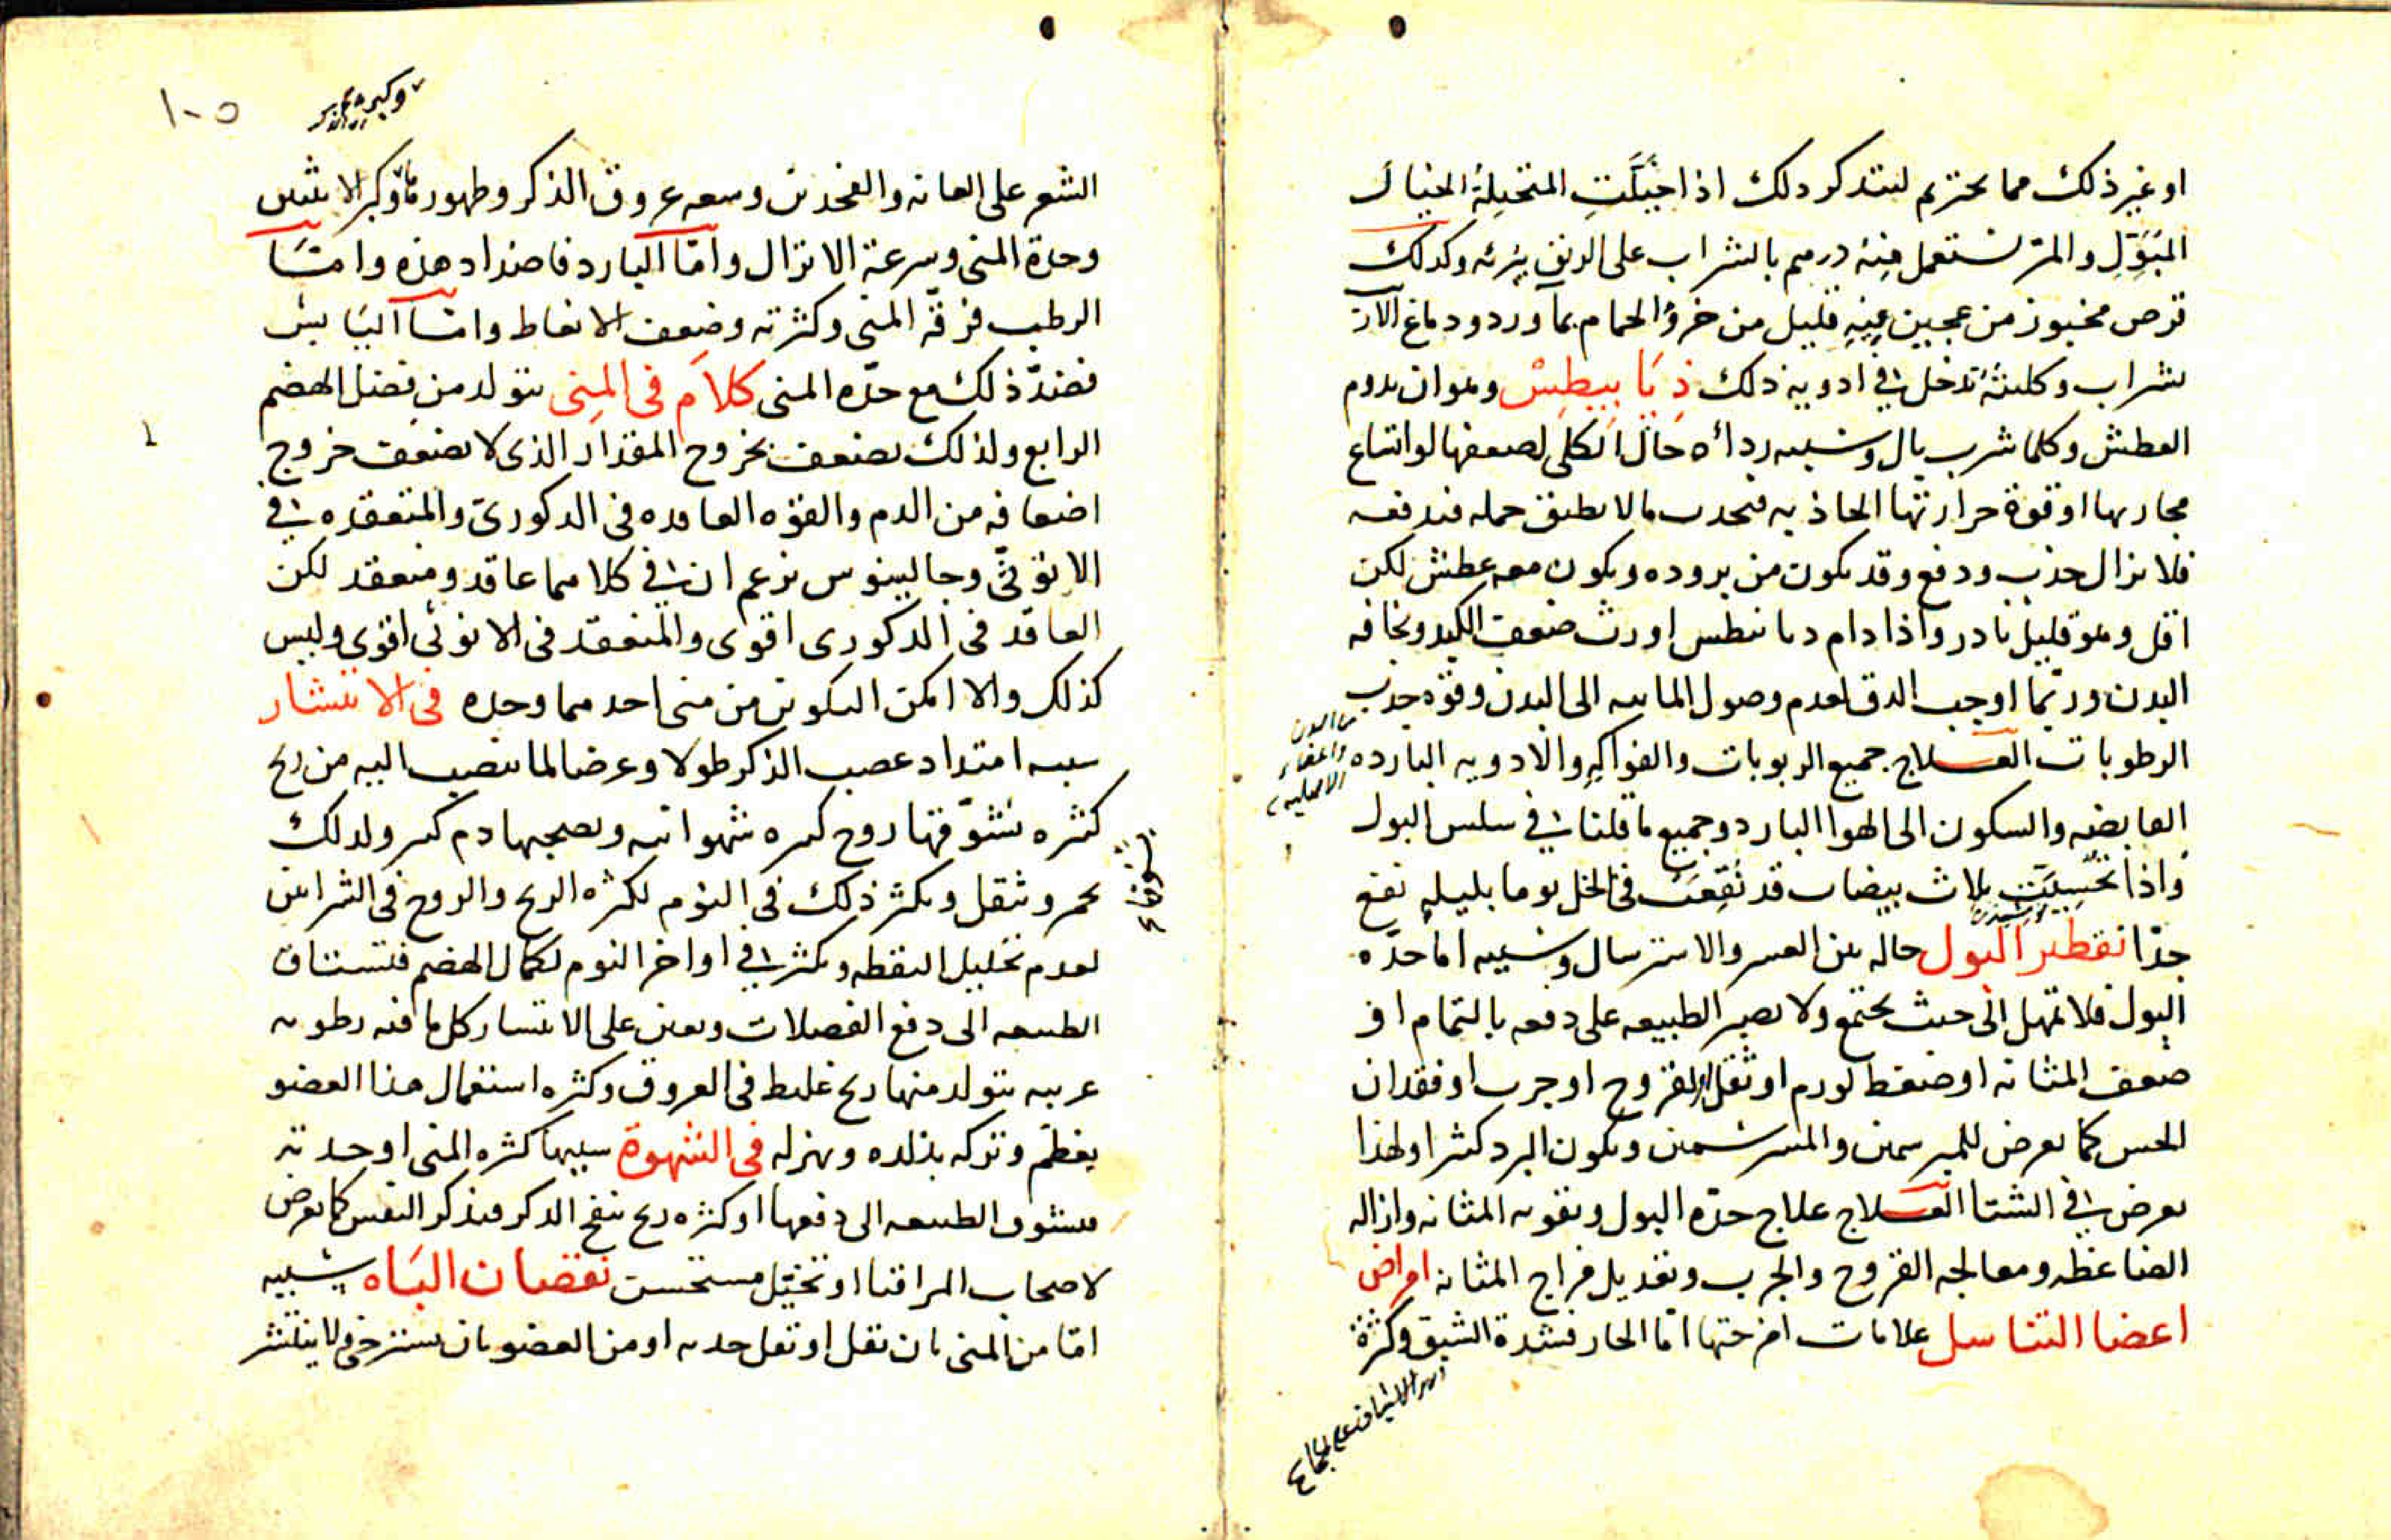 او غير ذلك مما يحتزم ليتذكر ذلك اذا خيلت المتخيلة الخيال
المبول والمر تستعمل منه درهم بالشراب على الريق يبرئه وكذلك
قرص مخبوز من عجين فيه قليل من خرؤ الحمام بماورد ودماغ الارنب
بشراب وكليته تدخل في ادوية ذلك ذيابيطس وهو ان يدوم
العطش وكلما شرب بال وسببه رداءة حال الكلى لضعفها او اتساع
مجاريها او قوة حرارتها الجاذبه فتجذب ما لا تطيق حمله فتدفعه
فلا تزال جذب ودفع وقد يكون من بروده ويكون معه عطش لكن
اقل وهو قليل نادر واذا دام ديابيطس اورث ضعف الكبد ونحافه
البدن وربما اوجب الدق لعدم وصول المائيه الى البدن وقوه جذب
الرطوبات العلاج جميع الربوبات والفواكه والادويه البارده
من البدن
والاعضاء
الاصليه
القابضه والسكون الى الهوا البارد وجميع ما قلنا في سلس البول
واذا تحسيت ثلاث بيضات قد نقعت في الخل يوما بليله نفع
جدا تقطير البول حاله بين العسر والاسترسال وسببه اما حده
البول فلا تمهل الى حيث يجتمع ولا تصبر الطبيعه على دفعه بالتمام او
ضعف المثانه او ضغط لورم او ثقل او لقروح او جرب او فقدان
الحس كما يعرض للمبرسمين والمسرسمين ويكون البرد كثيرا ولهذا
يعرض في الشتا العلاج علاج حده البول وتقويه المثانه وازاله
الضاغطه ومعالجه القروح والجرب وتعديل مزاج المثانه امراض
اعضا التناسل علامات امزجتها اما الحار فشدة الشبق وكثرة
١٠٥
وكبره
الشعر على العانه والفخذين وسعه عروق الذكر وظهورها وكبر الانثيين
وحدة المنى وسرعة الانزال واما البارد فاضداد هذه واما
الرطب فرقه المنى وكثرته وضعف الانعاظ واما اليابس
فضد ذلك مع حده المنى كلام في المنى يتولد من فضل الهضم
الرابع ولذلك يضعف بخروج المقدار الذى لا يضعف خروج
اضعافه من الدم والقوه العاقده في الذكورى والمنعقده في
الانوثى وجالينوس يزعم ان في كلاهما عاقد ومنعقد لكن
العاقد في الذكورى اقوى والمنعقد في الانوثى اقوى وليس
كذلك والا امكن التكوين من منى احدهما وحده في الانتشار
سببه امتداد عصب الذكر طولا وعرضا لما ينصب اليه من ريح
كثيره تشوقها روح كثيره شهوانيه ويصحبها دم كثير ولذلك
يحمر ويثقل ويكثر ذلك في النوم لكثره الريح والروح في الشرايين
لعدم تحليل اليقظه ويكثر في اواخر النوم لكمال الهضم فتشتاق
الطبيعه الى دفع الفضلات ويعين على الانتشار كل ما فيه رطوبه
غريبه يتولد منها ريح غليظ في العروق وكثره استعمال هذا العضو
يعظم وتركه يذبله ويهزله في الشهوة سببها كثره المنى او حدته
فيتشوق الطبيعه الى دفعها او كثره ريح ينفخ الذكر فيذكر النفس كما يعرض
لاصحاب المراقيا او تخيل مستحسن نقصان الباه سببه
اما من المنى بان يقل او تقل حدته او من العضو بان يسترخى ولا ينتشر